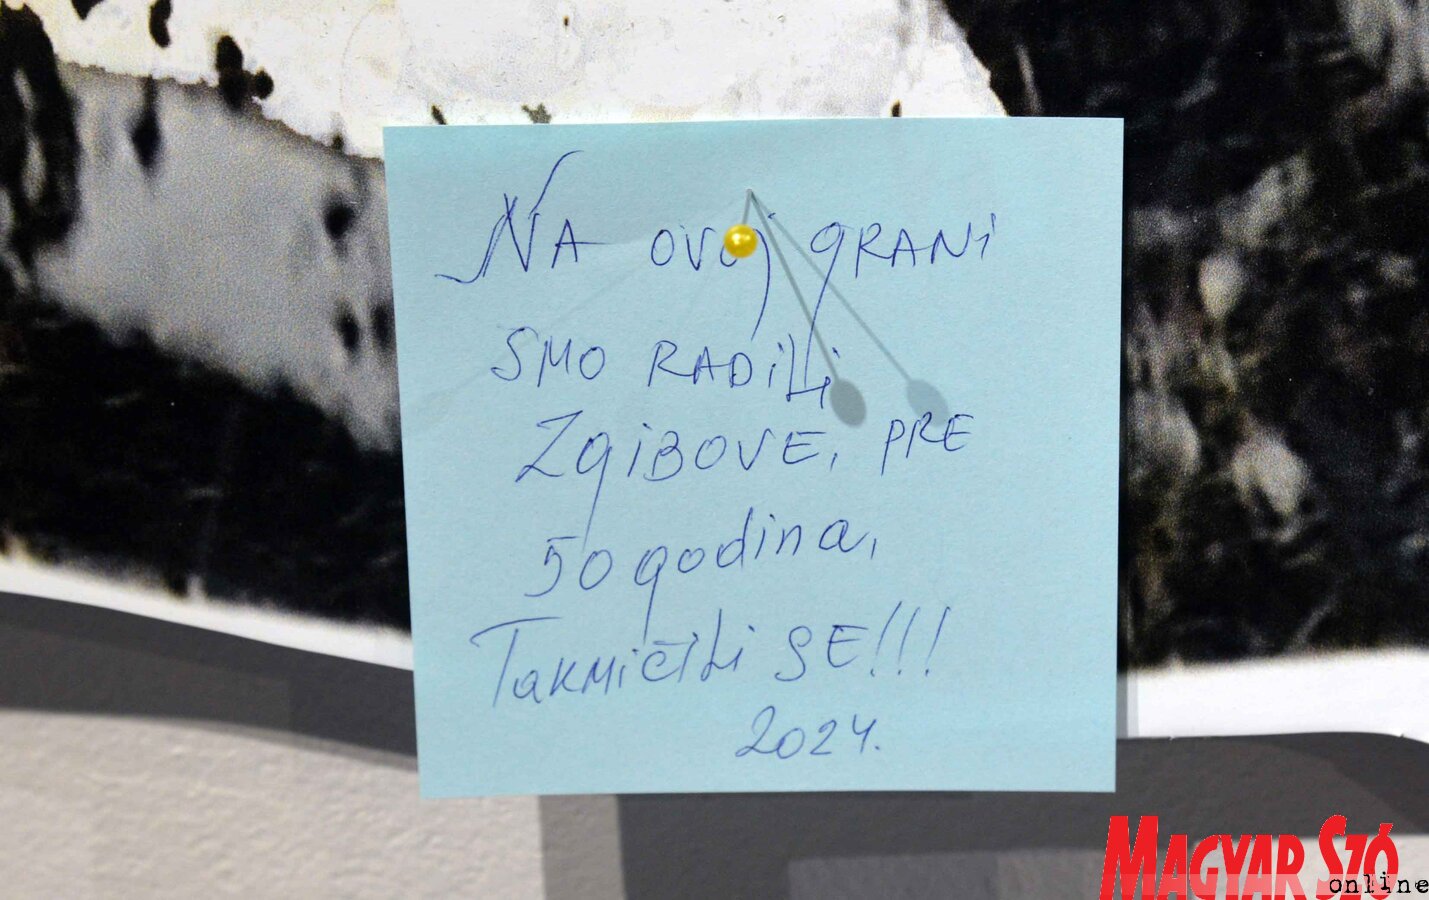 NA OVOJ GRANI
SMO RADILI
ZGIBOVE, PRE
50 godina,
TAKMIČILI SE!!!
2024.
MAGYAR SZÓ
online